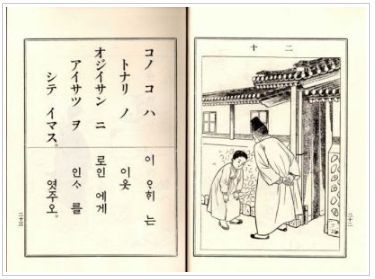 二十
コノ コ ハ
トナリ ノ
オジイサン ニ
アイサツ ヲ
シテ イマス。
이 ᄋᆞ희 는
이웃
로인 에게
인ᄉᆞ 를
엿주오。